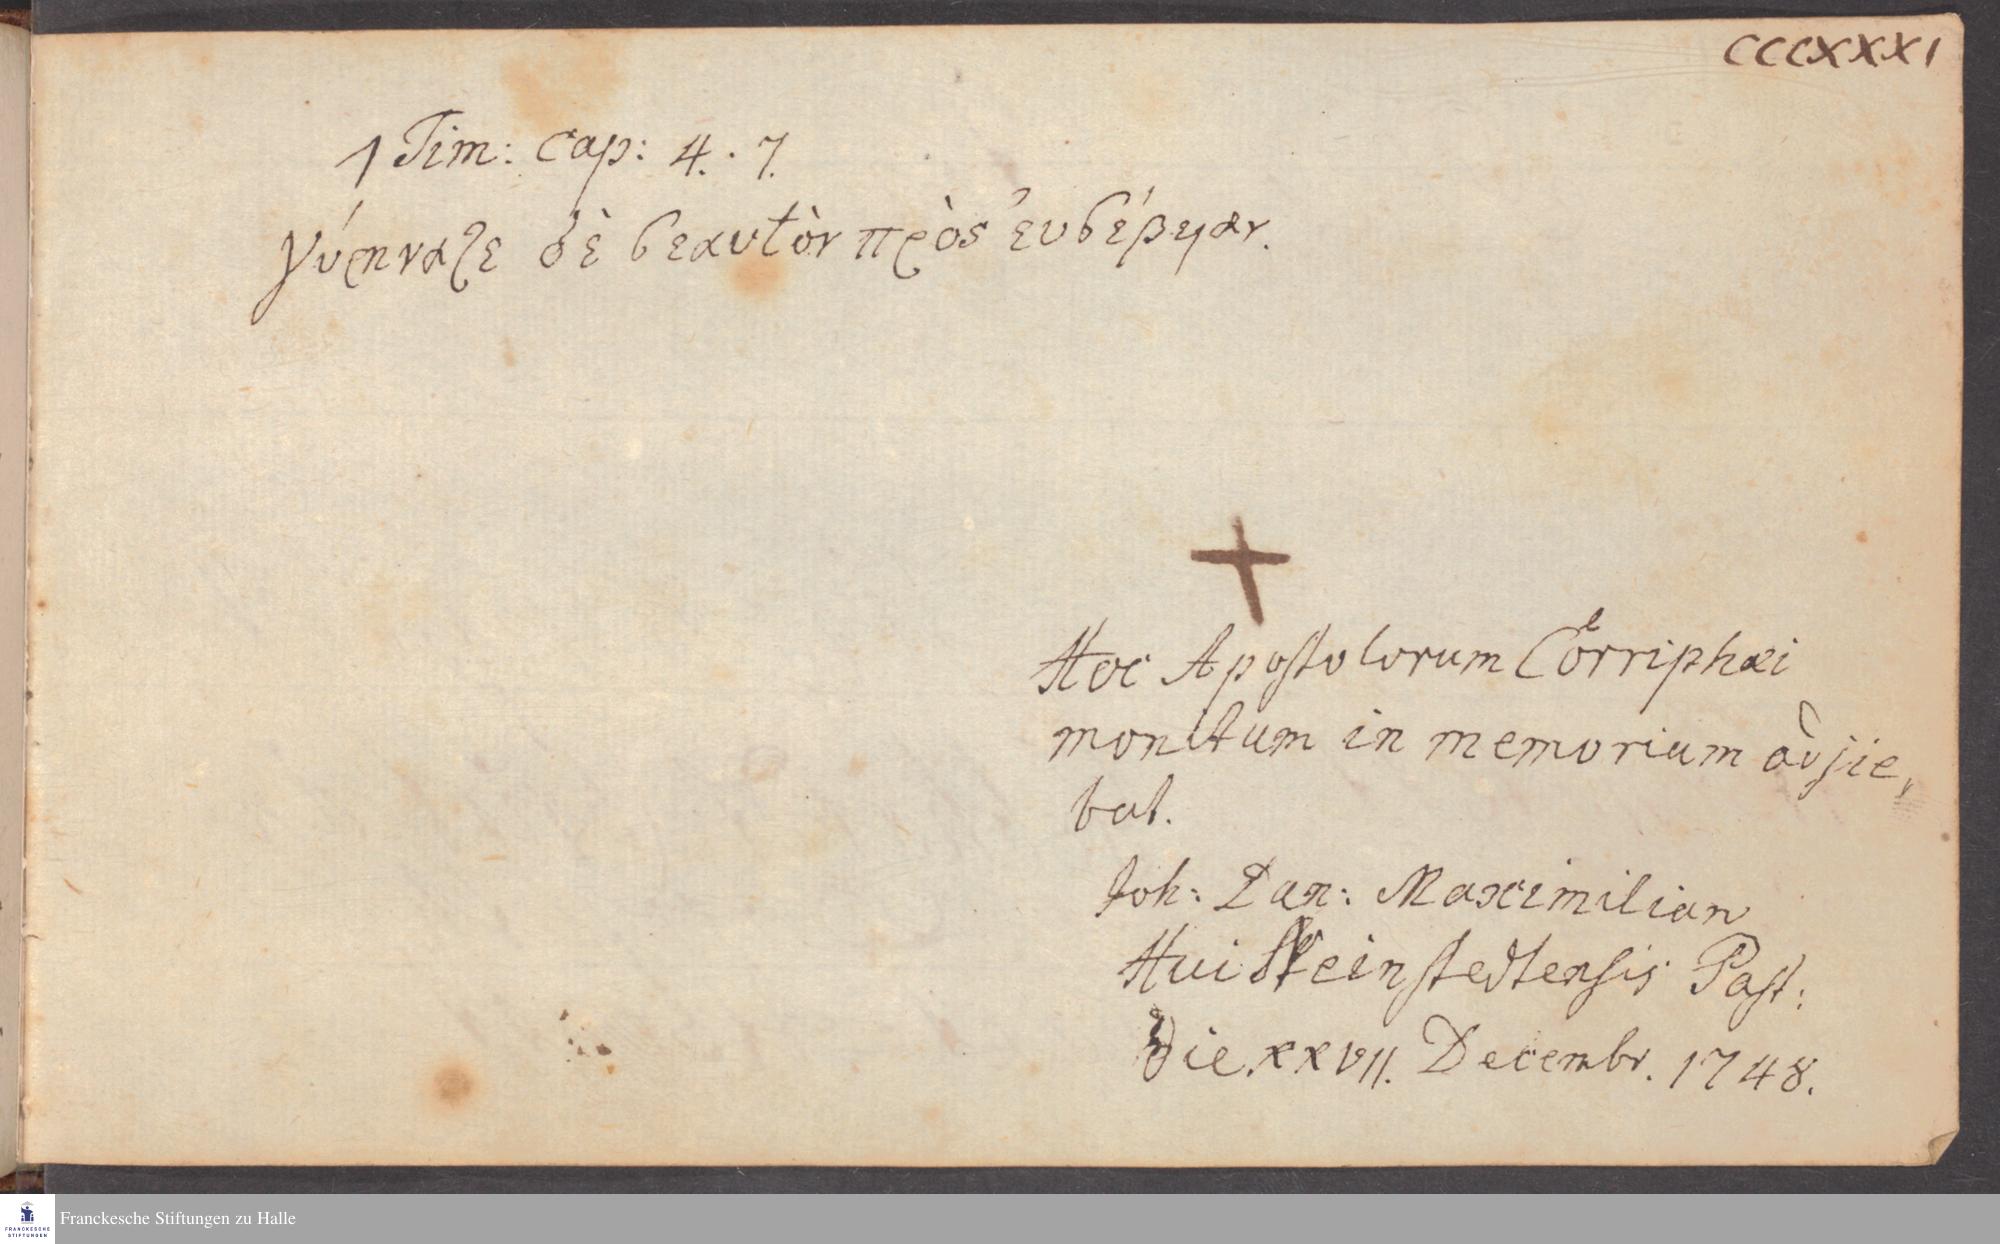 CCCXXXI
1 Tim: cap: 4. 7.
γύμναζε δὲ σεαυτὸν πρὸς ἐυσέβειαν.
Hoc Apostolorum Corriphæi
monitum in memorium
bat.
Joh: Dan: Maximilian
Past:
Die XXVII. Decembr. 1748.
FRANCKESCHE
STIFTUNGEN
Franckesche Stiftungen zu Halle